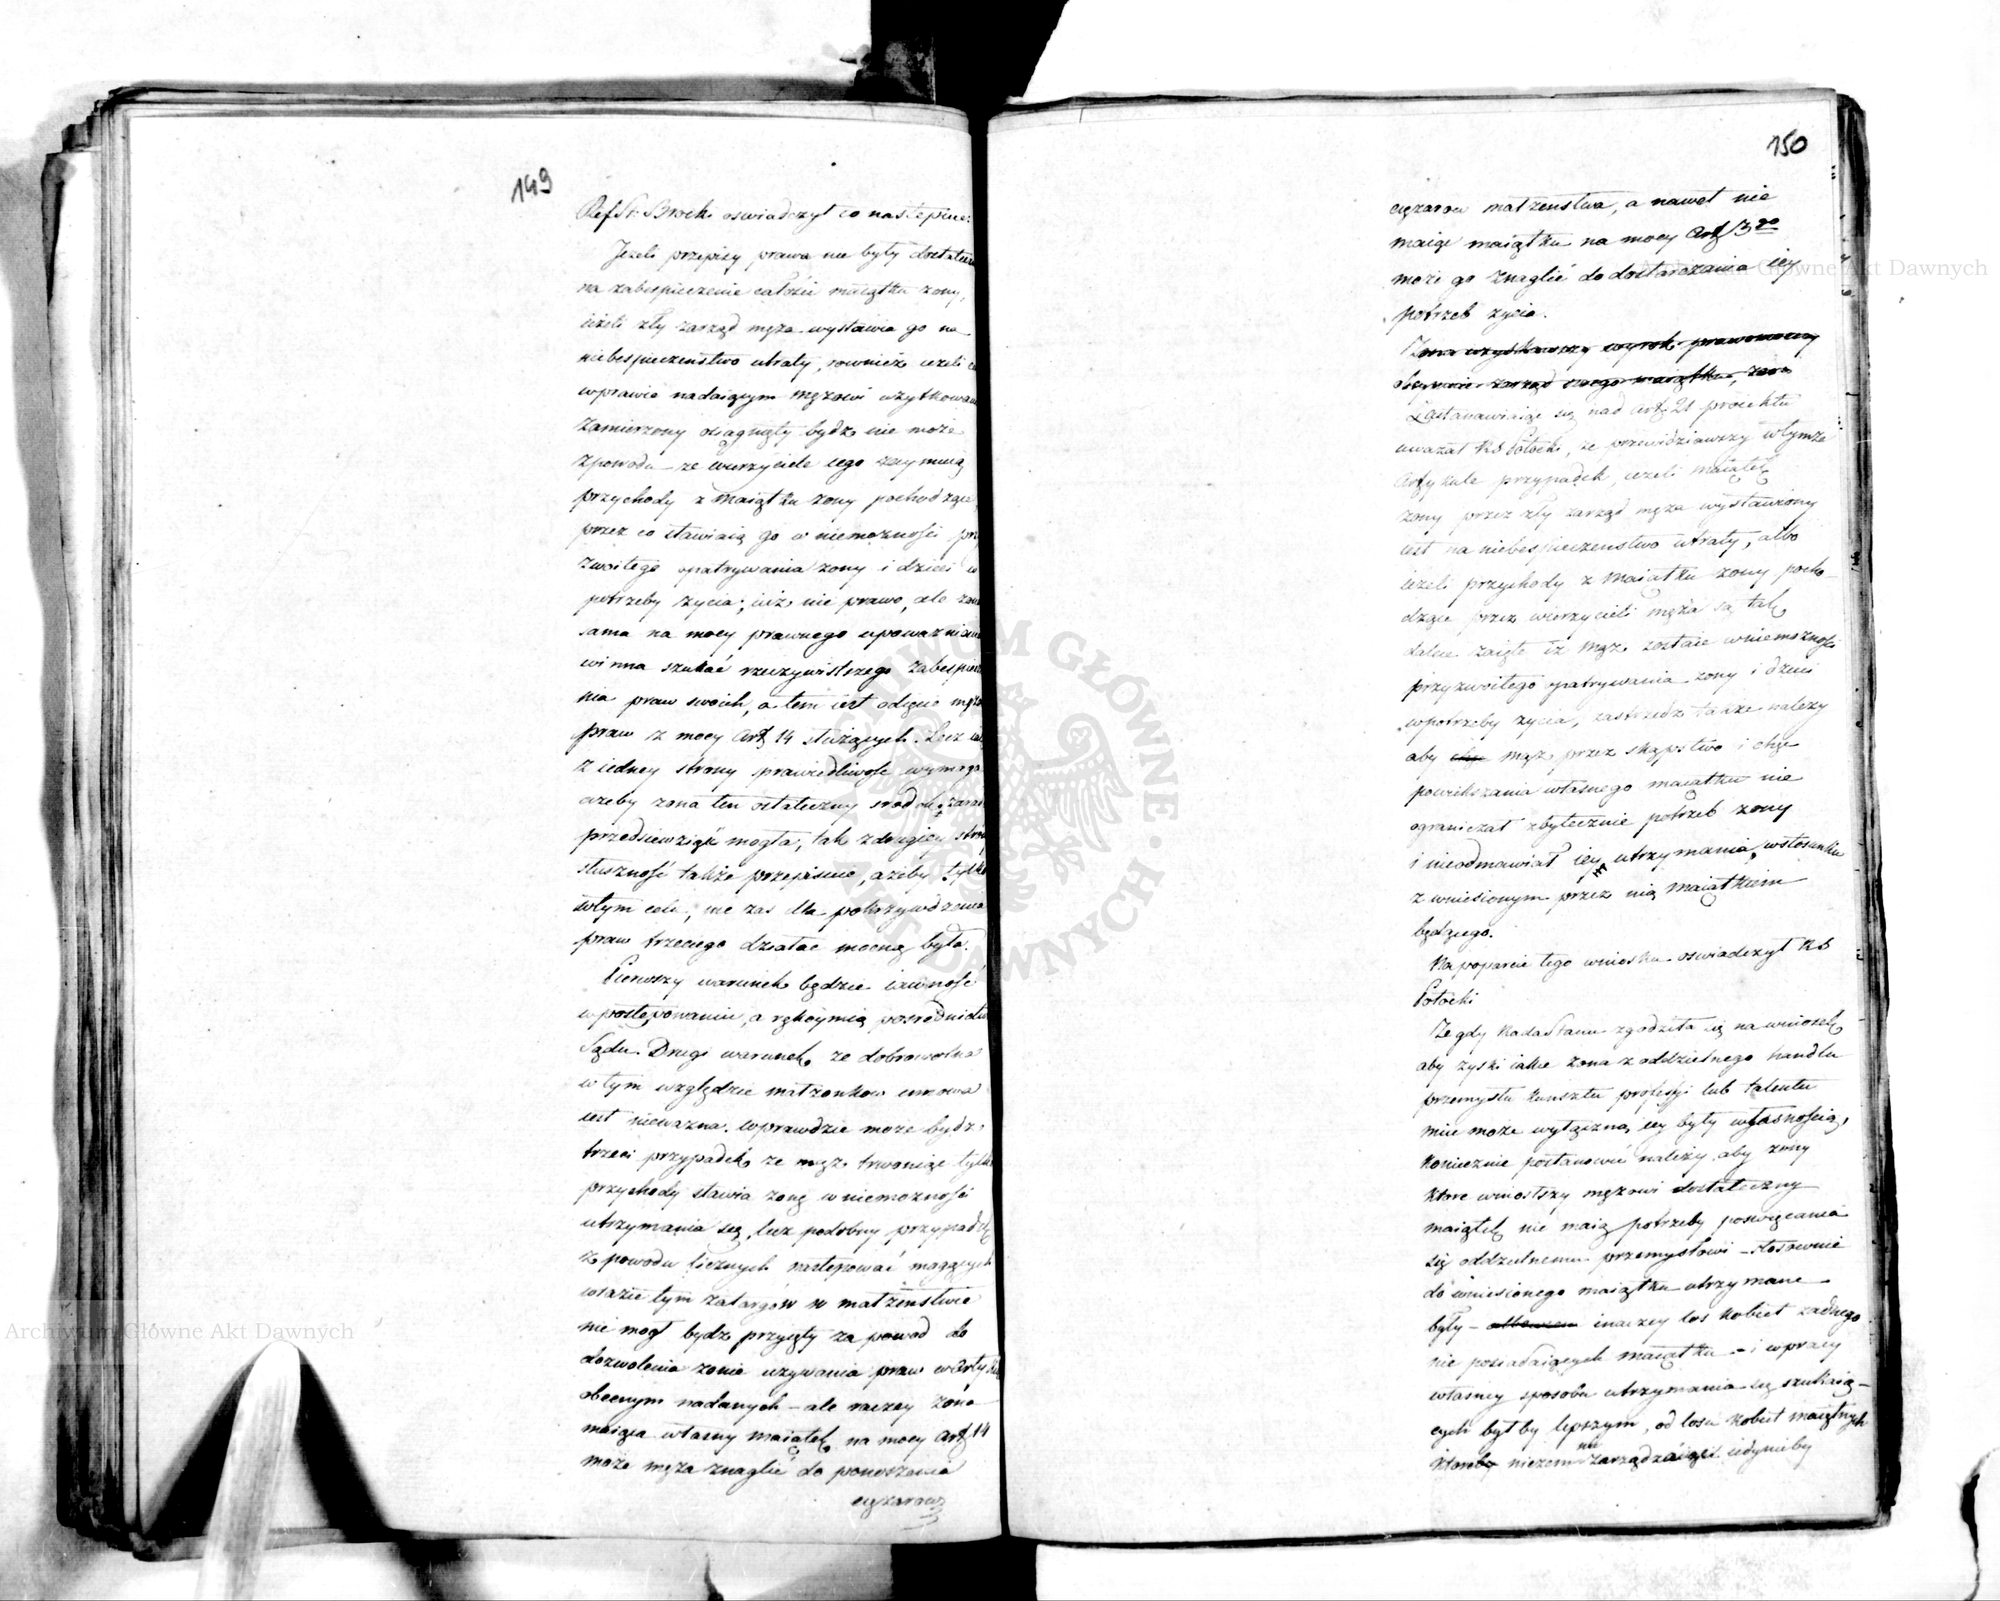 149
Ref. St. Brocki oswiadczył co następuie:
Jeżeli przepisy prawa nie były dostatecz
na zabespieczenie całości maiątku żony,
ieżeli zły zarząd męża wystawia go na
niebespieczeństwo utraty, rownież ieżeli c
w prawie nadaiącym mężowi użytkowan
zamierzony osiągnięty bydź nie może
z powodu że wierzyciele iego zaymuią
przychody z maiątku żony pochodzące
przez co stawiaią go w niemożności prz
zwoitego opatrywania żony i dzieci w
potrzeby życia; iuż nie prawo, ale żona
sama na mocy prawnego upoważnienia
winna szukać rzeczywistszego zabespiecze
nia praw swoich, a tem iest odięcie mężo
praw z mocy Art 14 służących. Lecz iak
z iedney strony sprawiedliwość wymaga
ażeby żona ten ostateczny srodek zara
przedsiewziąść mogła, tak z drugiey stro
słuszność także przepisuie, ażeby tylko
w tym celu, nie zas dla pokrzywdzenia
praw trzeciego działać mocną była.
Pierwszy warunek będzie iawność
w postępowaniu, a rękoymią pośrednictw
Sądu. Drugi warunek, że dobrowolna
w tym względzie małżonkow umowa
iest nieważna. Wprawdzie może bydź
trzeci przypadek że mąż trwoniąc tylko
przychody stawia żonę w niemożności
utrzymania się, lecz podobny przypadek
z powodu licznych następować mogących
w razie tym zatargów w małżeństwie
nie mogł bydź przyięty za powod do
dozwolenia żonie używania praw w Artyku
obecnym nadanych – ale raczey żona
maiąca własny maiątek na mocy Art 14
może męża znaglić do ponoszenia
ciężarow
150
ciężarow małżeństwa, a nawet nie
maiąc maiątku na mocy Art 13go
może go znaglić do dostarczania iey
potrzeb życia.
Żona uzyskawszy wyrok prawomocny
obeymuie zarząd swego maiątku,
Zastanawiaiąc się nad Art 21 proiektu
uważał RS Potocki, że przewidziawszy w tymże
Artykule przypadek, ieżeli maiątek
żony przez zły zarząd męża wystawiony
iest na niebespieczenstwo utraty, albo
ieżeli przychody z maiątku żony pocho-
dzące przez wierzycieli męża są tak
dalece zaięte iż mąż zostaie w niemożności
przyzwoitego opatrywania żony i dzieci
w potrzeby życia, zastrzedz także należy
aby mąż przez skąpstwo i chęć
powiększania własnego maiątku nie
ograniczał zbytecznie potrzeb żony
i nieodmawiał iey utrzymania w stosunku
z wniesionym przez nią maiątkiem
będącego.
Na poparcie tego wniosku oswiadczył RS
Potocki
Że gdy Rada Stanu zgodziła się na wniosek
aby zyski iakie żona z oddzielnego handlu
przemysłu kunsztu professyi lub talentu
mieć może wyłączną iey były własnością,
koniecznie postanowić należy aby żony
ktore wniosłszy mężowi dostateczny
maiątek nie maią potrzeby poswięcania
się oddzielnemu przemysłowi – stosownie
do wniesionego maiątku utrzymane
były – inaczey los kobiet żadnego
nie posiadaiących maiątku – i w pracy
własney sposobu utrzymania się szukaią-
cych byłby lepszym, od losu kobiet maiętnych
ktoreby niczem nie zarządzaiąc iedynieby